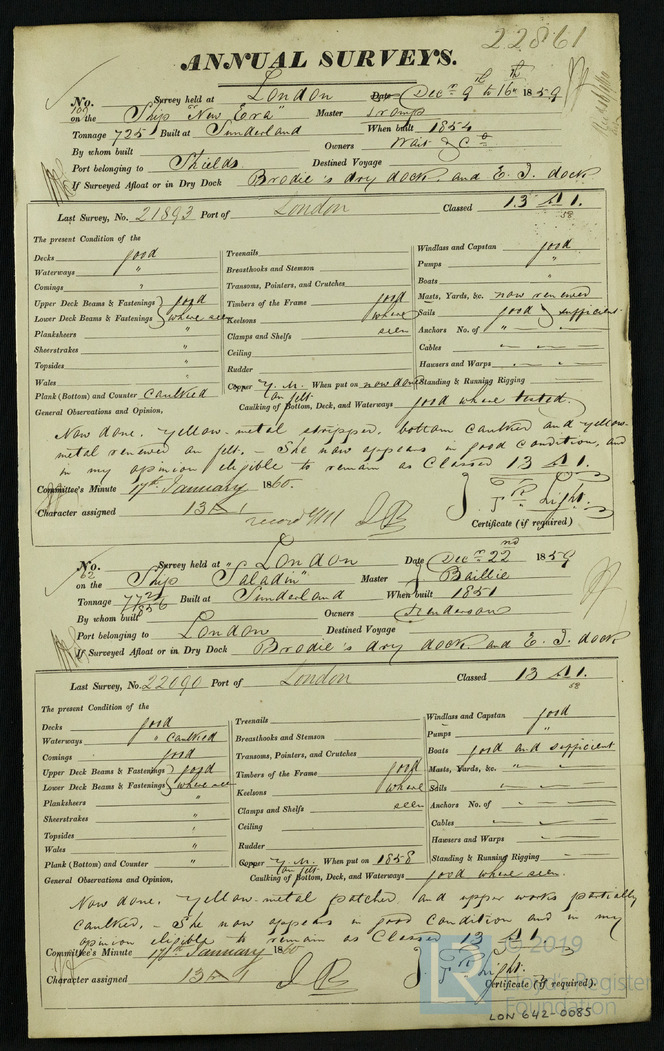 22861
ANNUAL SURVEYS.
No. Survey held at London Date Decr 9th to 16th 1859
on the Ship "New Era" Master
Tonnage 725 Built at Sunderland When built 1854
By whom built Owners Wait & Co
Port belonging to Shields Destined Voyage
If Surveyed Afloat or in Dry Dock Brodie's dry dock and E. I. dock
Last Survey, No. 21893 Port of London Classed 13 A 1.
58
The present Condition of the
Decks good
Waterways "
Comings "
Upper Deck Beams & Fastenings } good
Lower Deck Beams & Fastenings } where seen
Planksheers "
Sheerstrakes "
Topsides "
Wales "
Plank (Bottom) and Counter Caulked
Treenails
Breasthooks and Stemson
Transoms, Pointers, and Crutches
Timbers of the Frame good
Keelsons where
Clamps and Shelfs seen
Ceiling
Rudder
Copper Y. M. When put on now done
on felt
Windlass and Capstan good
Pumps "
Boats "
Masts, Yards, &c. now renewed
Sails good } sufficient
Anchors No. of "
Cables
Hawsers and Warps
Standing & Running Rigging
General Observations and Opinion, Caulking of Bottom, Deck, and Waterways good where tested.
Now done. Yellow-metal stripped, bottom caulked and yellow-
metal renewed on felt. – She now appears in good condition, and
in my opinion eligible to remain as Classed 13 A 1.
Committee's Minute 17th January 1860.
Character assigned 13 A 1
record YM
J. Fr Light.
Certificate (if required)
No. Survey held at London Date Decr 22nd 1859
62
on the Ship "Saladin" Master J Baillie
Tonnage Built at Sunderland When built 1851
By whom built Owners Henderson
Port belonging to London Destined Voyage
If Surveyed Afloat or in Dry Dock Brodie's dry dock and E. I. dock
Last Survey, No. 22090 Port of London Classed 13 A 1.
58
The present Condition of the
Decks good
Waterways " Caulked
Comings good
Upper Deck Beams & Fastenings } good
Lower Deck Beams & Fastenings } where seen
Planksheers "
Sheerstrakes "
Topsides "
Wales "
Plank (Bottom) and Counter "
Treenails
Breasthooks and Stemson
Transoms, Pointers, and Crutches
Timbers of the Frame good
Keelsons where
Clamps and Shelfs seen
Ceiling
Rudder
Copper Y. M. When put on 1858
on felt
Windlass and Capstan good
Pumps "
Boats good and sufficient
Masts, Yards, &c. "
Sails
Anchors No. of
Cables
Hawsers and Warps
Standing & Running Rigging
General Observations and Opinion, Caulking of Bottom, Deck, and Waterways good where seen.
Now done. Yellow-metal patched and upper works partially
caulked. – She now appears in good condition and in my
opinion eligible to remain as Classed 13 A 1.
Committee's Minute 17th January 1860
Character assigned 13 A 1
J. Fr Light.
Certificate (if required).
LR © 2019
Lloyd's Register
Foundation
LON 642-0085